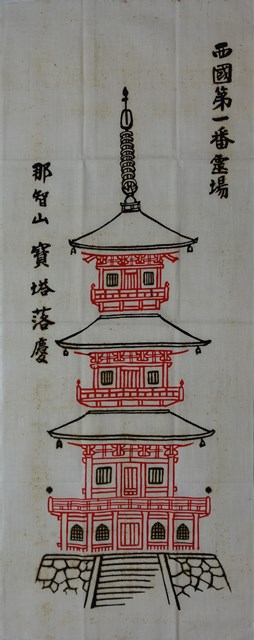 西國第一番霊場
那智山 寳塔落慶